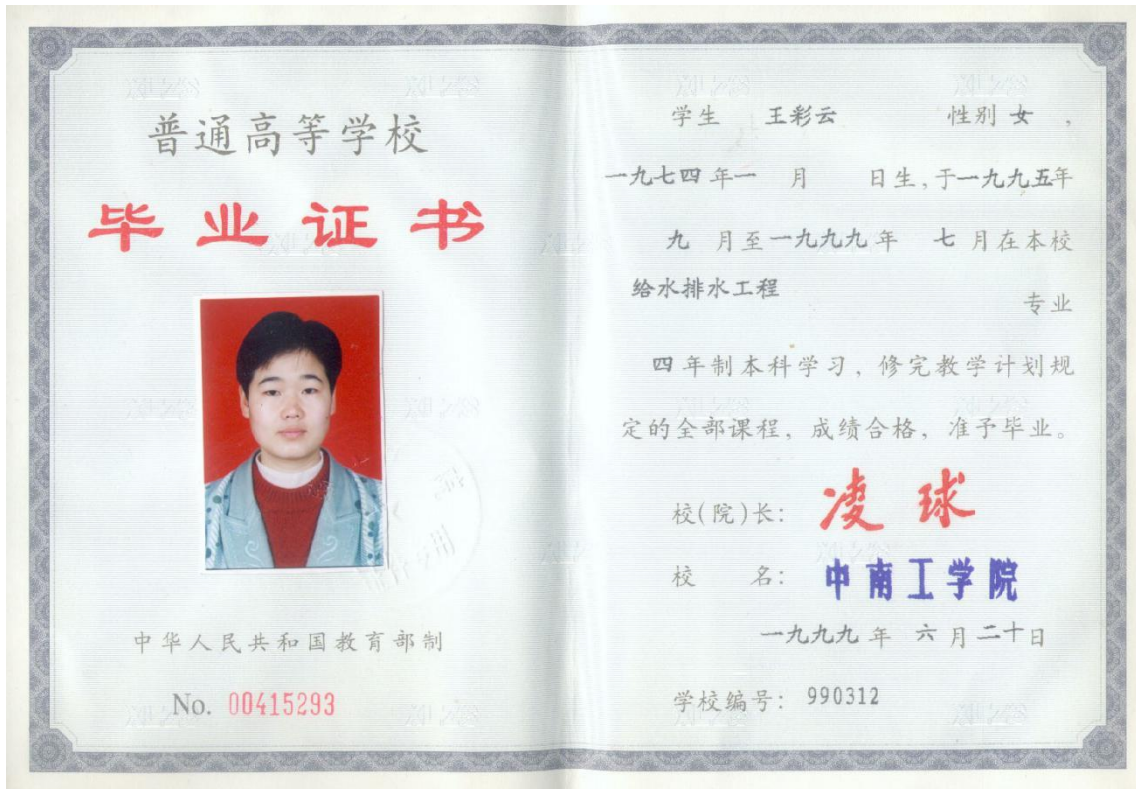 普通高等学校
毕业证书
中华人民共和国教育部制
No. 00415293
学生 王彩云 性别 女 ,
一九七四年一 月 日生,于一九九五年
九 月至一九九九年 七月在本校
给水排水工程
专业
四年制本科学习，修完教学计划规
定的全部课程，成绩合格，准予毕业。
校(院)长: 凌球
校 名: 中南工学院
一九九九年 六月二十日
学校编号: 990312